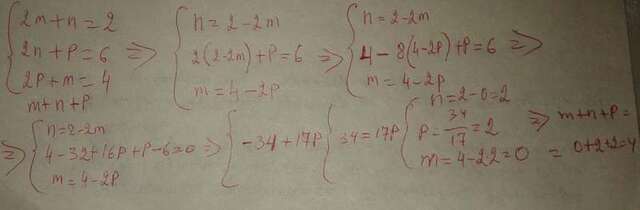 2m+n=2
2n+p=6
2p+m=4
m+n+p
⇒
n=2-2m
2(2-2m)+p=6
m=4-2p
⇒
n=2-2m
4-8(4-2p)+p=6
m=4-2p
⇒
⇒
n=2-2m
4-32+16p+p-6=0
m=4-2p
⇒
-34+17p
34=17p
n=2-0=2
p=34/17=2
m=4-22=0
⇒ m+n+p=
= 0+2+2=4